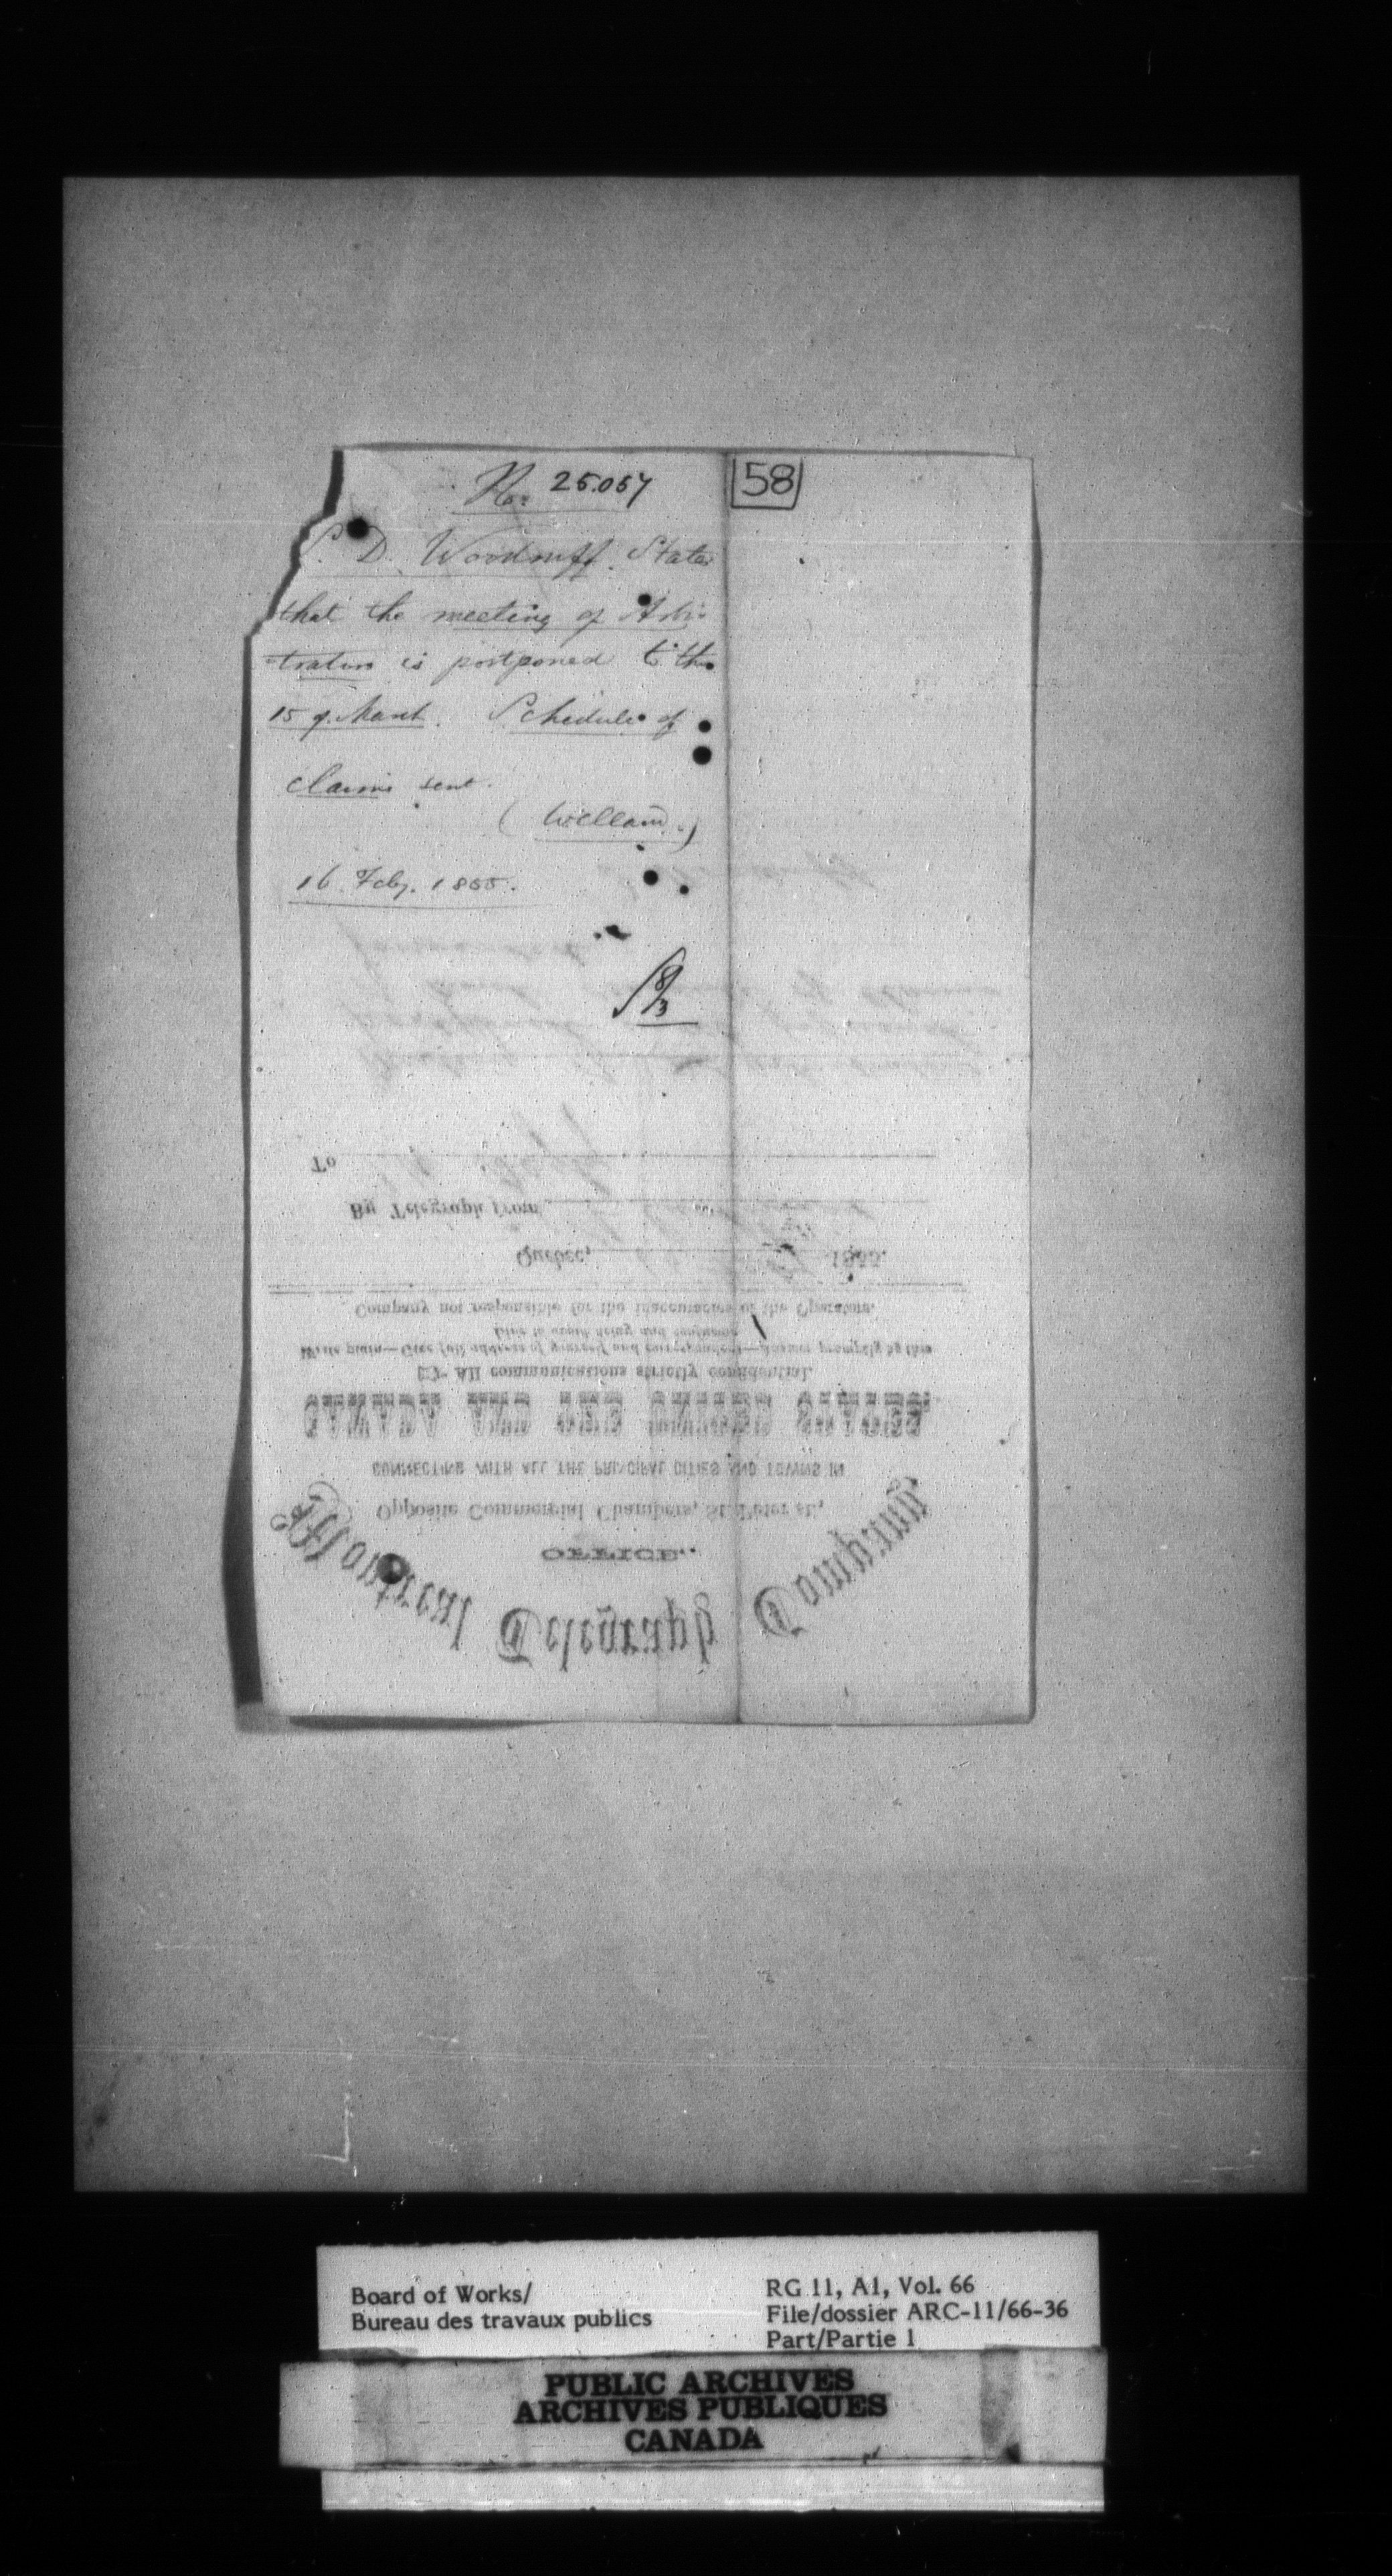 No. 25.057
58
S. D. Woodruff. States
that the meeting of Arbi-
-trators is postponed to the
15 of March. Schedule of
claims sent.
(Welland.)
16 Feby. 1855.
To
By Telegraph from
Quebec, 1855.
Company not responsible for the inaccuracies of the Operators.
Line to avoid delay and confusion
Write plain—Give full address of yourself and correspondent—Answer promptly by this
All communications strictly confidential.
CANADA AND THE UNITED STATES.
CONNECTING WITH ALL THE PRINCIPAL CITIES AND TOWNS IN
Opposite Commercial Chambers, St. Peter st.,
OFFICE..
Montreal Telegraph Company
Board of Works/
Bureau des travaux publics
RG 11, A1, Vol. 66
File/dossier ARC-11/66-36
Part/Partie 1
PUBLIC ARCHIVES
ARCHIVES PUBLIQUES
CANADA